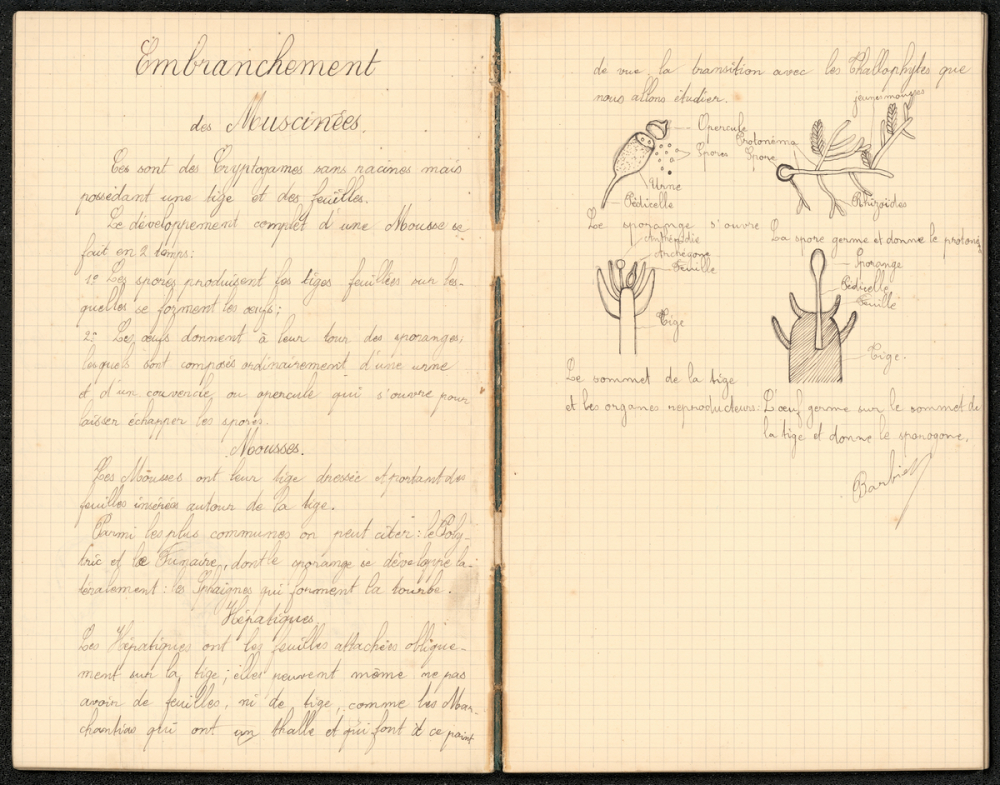 Embranchement
des Muscinées.
Ces sont des Cryptogames sans racines mais
possédant une tige et des feuilles.
Le développement complet d'une Mousse se
fait en 2 temps:
1º Les spores produisent les tiges feuillées sur les-
quelles se forment les œufs;
2º Les œufs donnent à leur tour des sporanges;
lesquels sont composés ordinairement d'une urne
et d'un couvercle, ou opercule qui s'ouvre pour
laisser échapper les spores.
Mousses.
Les Mousses ont leur tige dressée et portant des
feuilles insérées autour de la tige.
Parmi les plus communes on peut citer: le Poly-
tric et la Funaire, dont le sporange se développe la-
téralement: les Sphaignes qui forment la tourbe.
Hépatiques.
Les Hépatiques ont les feuilles attachées oblique-
ment sur la tige; elles peuvent même ne pas
avoir de feuilles, ni de tige, comme les Mar-
chantias qui ont un thalle et qui font de ce point
de vue la transition avec les Thallophytes que
nous allons étudier.
Opercule
Spores
Urne
Pédicelle
Le sporange s'ouvre
jeunes mousses
Protonéma
Spore
Rhizoïdes
La spore germe et donne le protoné
Anthéridie
Archégone
Feuille
Tige
Le sommet de la tige
et les organes reproducteurs:
Sporange
Pédicelle
Feuille
Tige.
L'œuf germe sur le sommet de
la tige et donne le sporogone.
Barbier